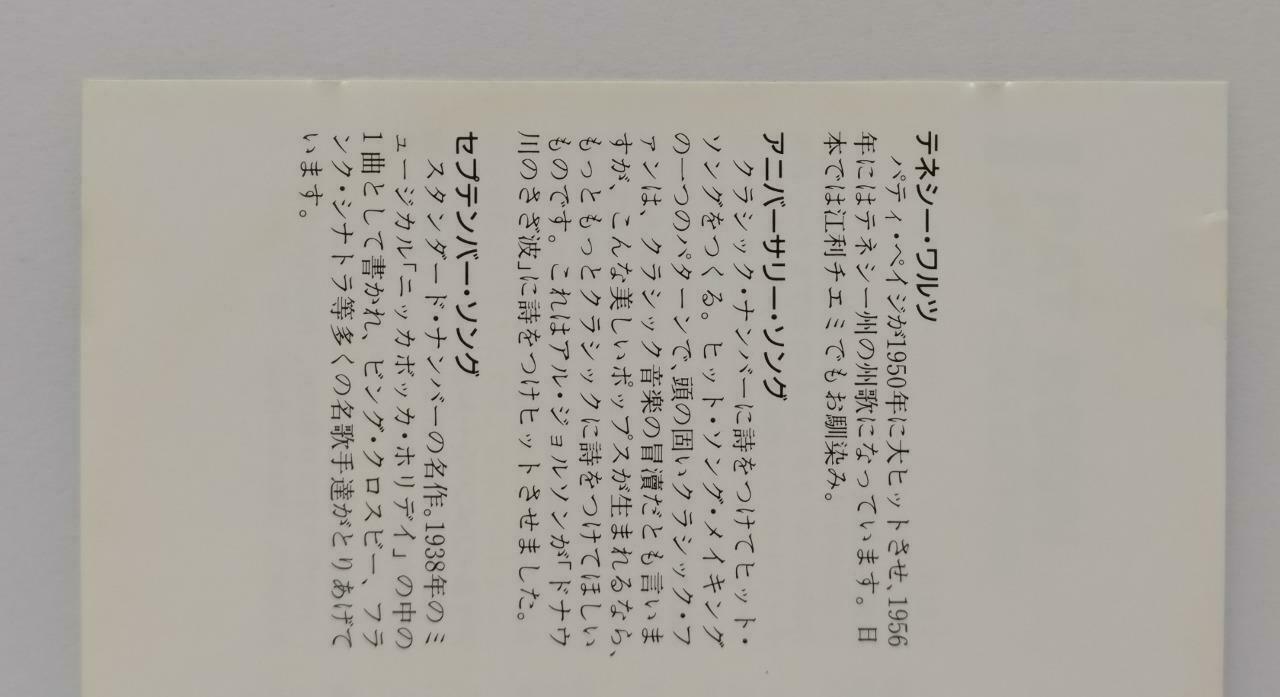 テネシー・ワルツ
パティ・ペイジが1950年に大ヒットさせ、1956
年にはテネシー州の州歌になっています。日
本では江利チエミでもお馴染み。
アニバーサリー・ソング
クラシック・ナンバーに詩をつけてヒット・
ソングをつくる。ヒット・ソング・メイキング
の一つのパターンで、頭の固いクラシック・フ
ァンは、クラシック音楽の冒瀆だとも言いま
すが、こんな美しいポップスが生まれるなら、
もっともっとクラシックに詩をつけてほしい
ものです。これはアル・ジョルソンが「ドナウ
川のさざ波」に詩をつけヒットさせました。
セプテンバー・ソング
スタンダード・ナンバーの名作。1938年のミ
ュージカル「ニッカボッカ・ホリデイ」の中の
1曲として書かれ、ビング・クロスビー、フラ
ンク・シナトラ等多くの名歌手達がとりあげて
います。